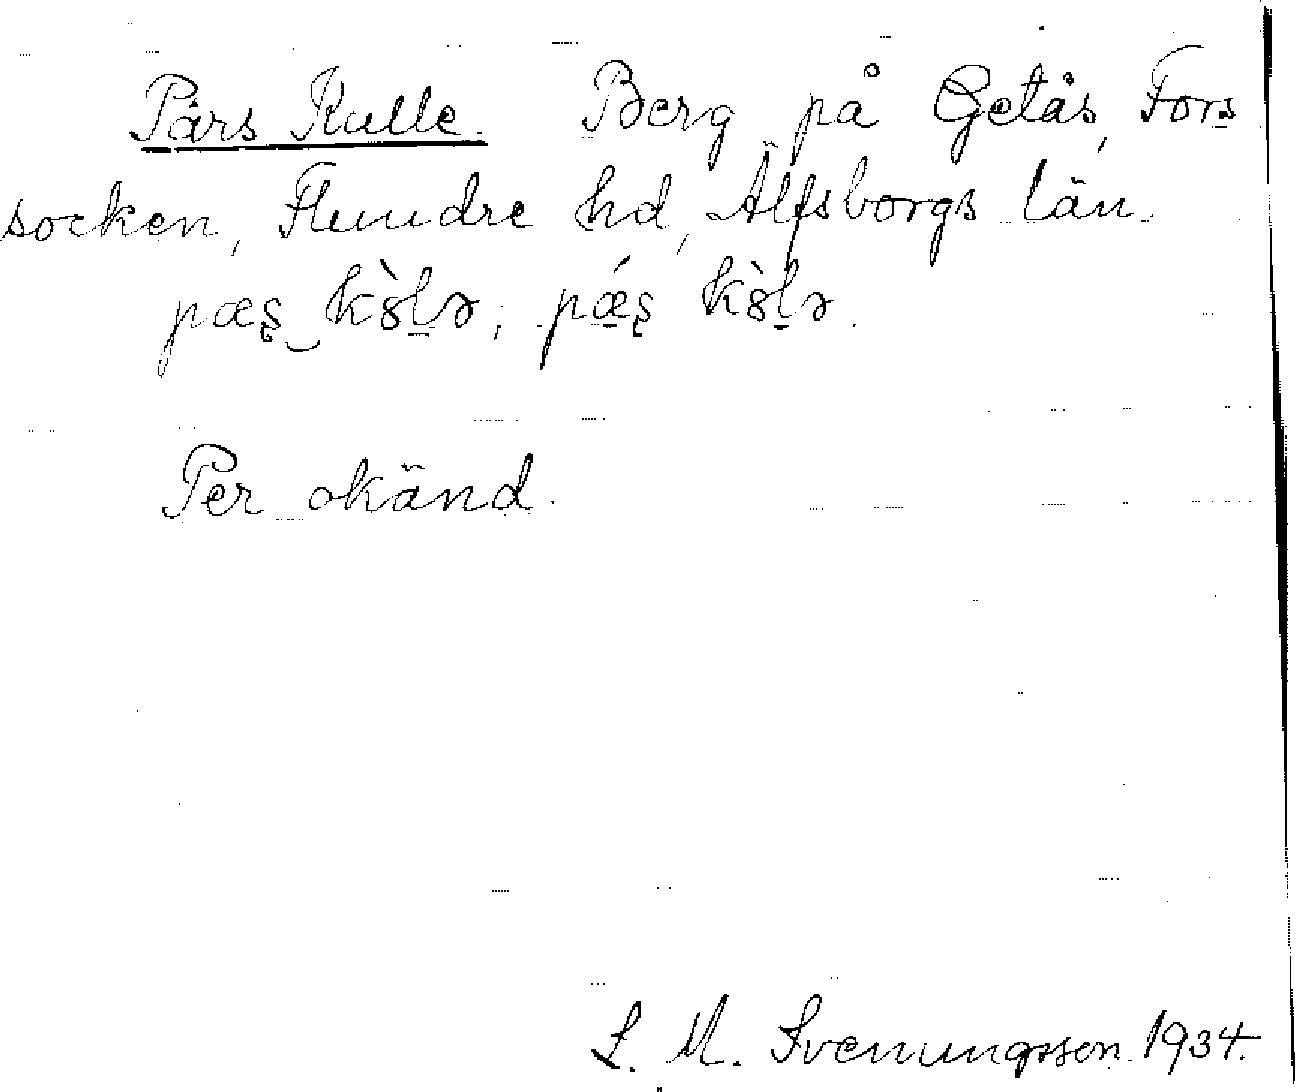 Pärs Kulle. Berg på Getås, Fors
socken, Flundre hd, Älfsborgs län.
pæʂ k
Per okänd.
S. M. Svenungsson 1934.